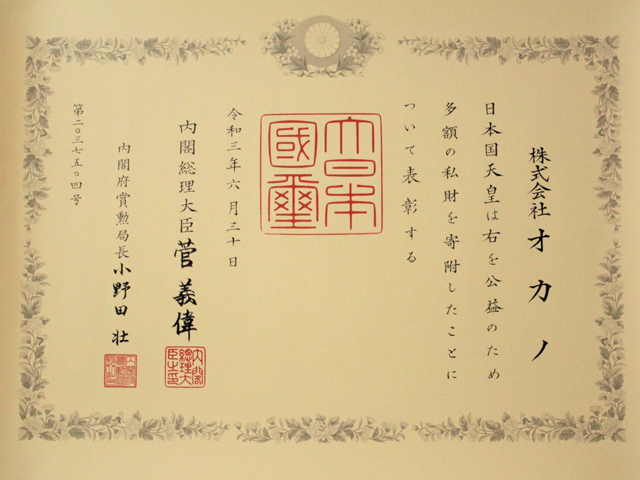 株式会社オカノ
日本国天皇は右を公益のため
多額の私財を寄附したことに
ついて表彰する
大日本
國璽
令和三年六月三十日
内閣総理大臣 菅義偉
内閣総理大臣之印
内閣府賞勲局長 小野田壮
第二〇三七五〇四号